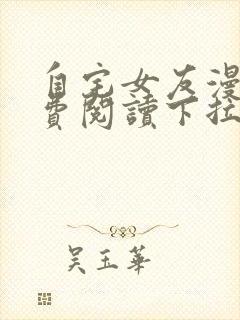 自宅女友漫
費閱讀下拉
吴玉華